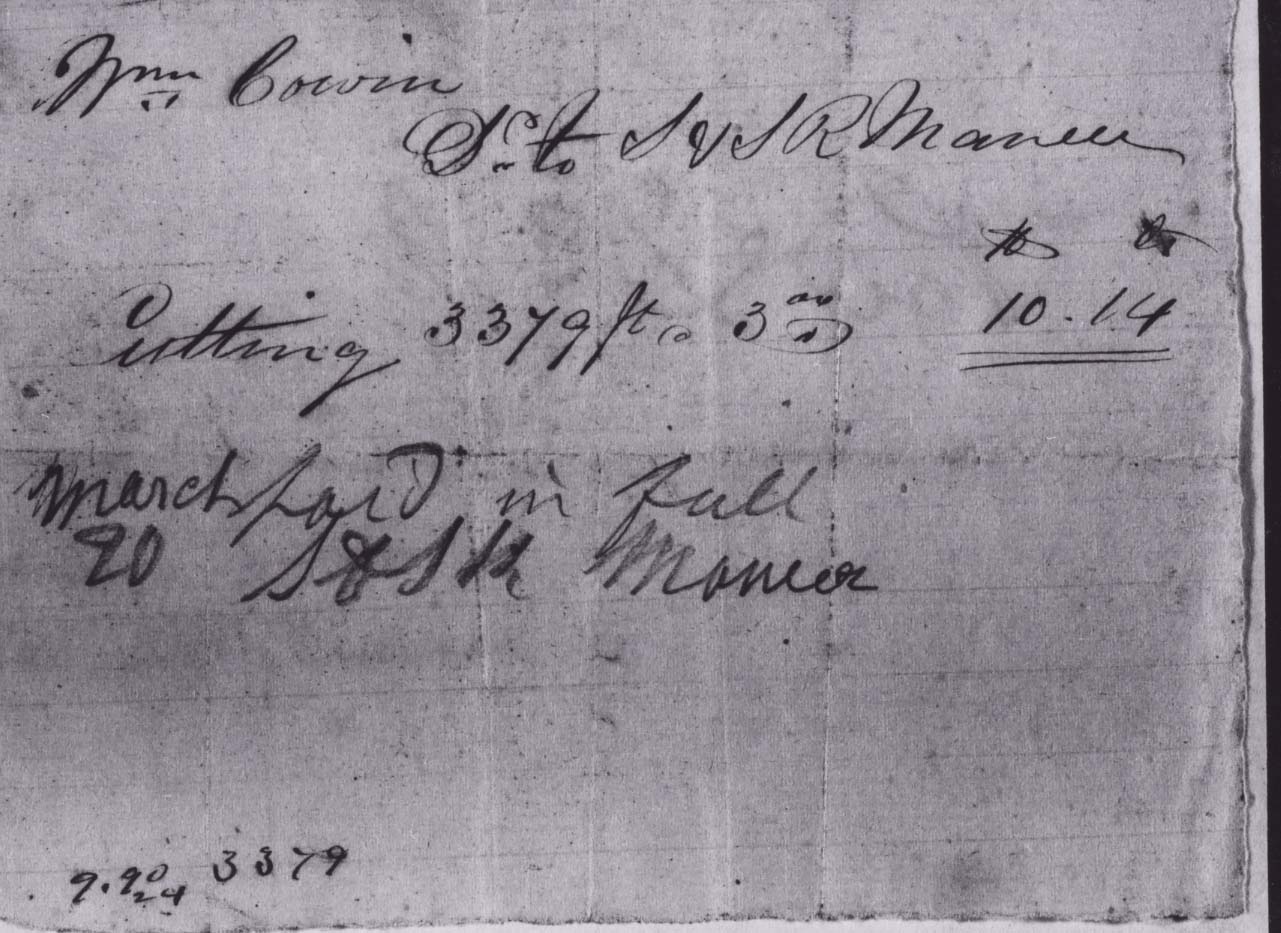 Wm Cowin
Dr. to S & S R Maneer
Cutting 3379 ft @ 3 00 10.14
March paid in full
20 S & S R Maneer
3379